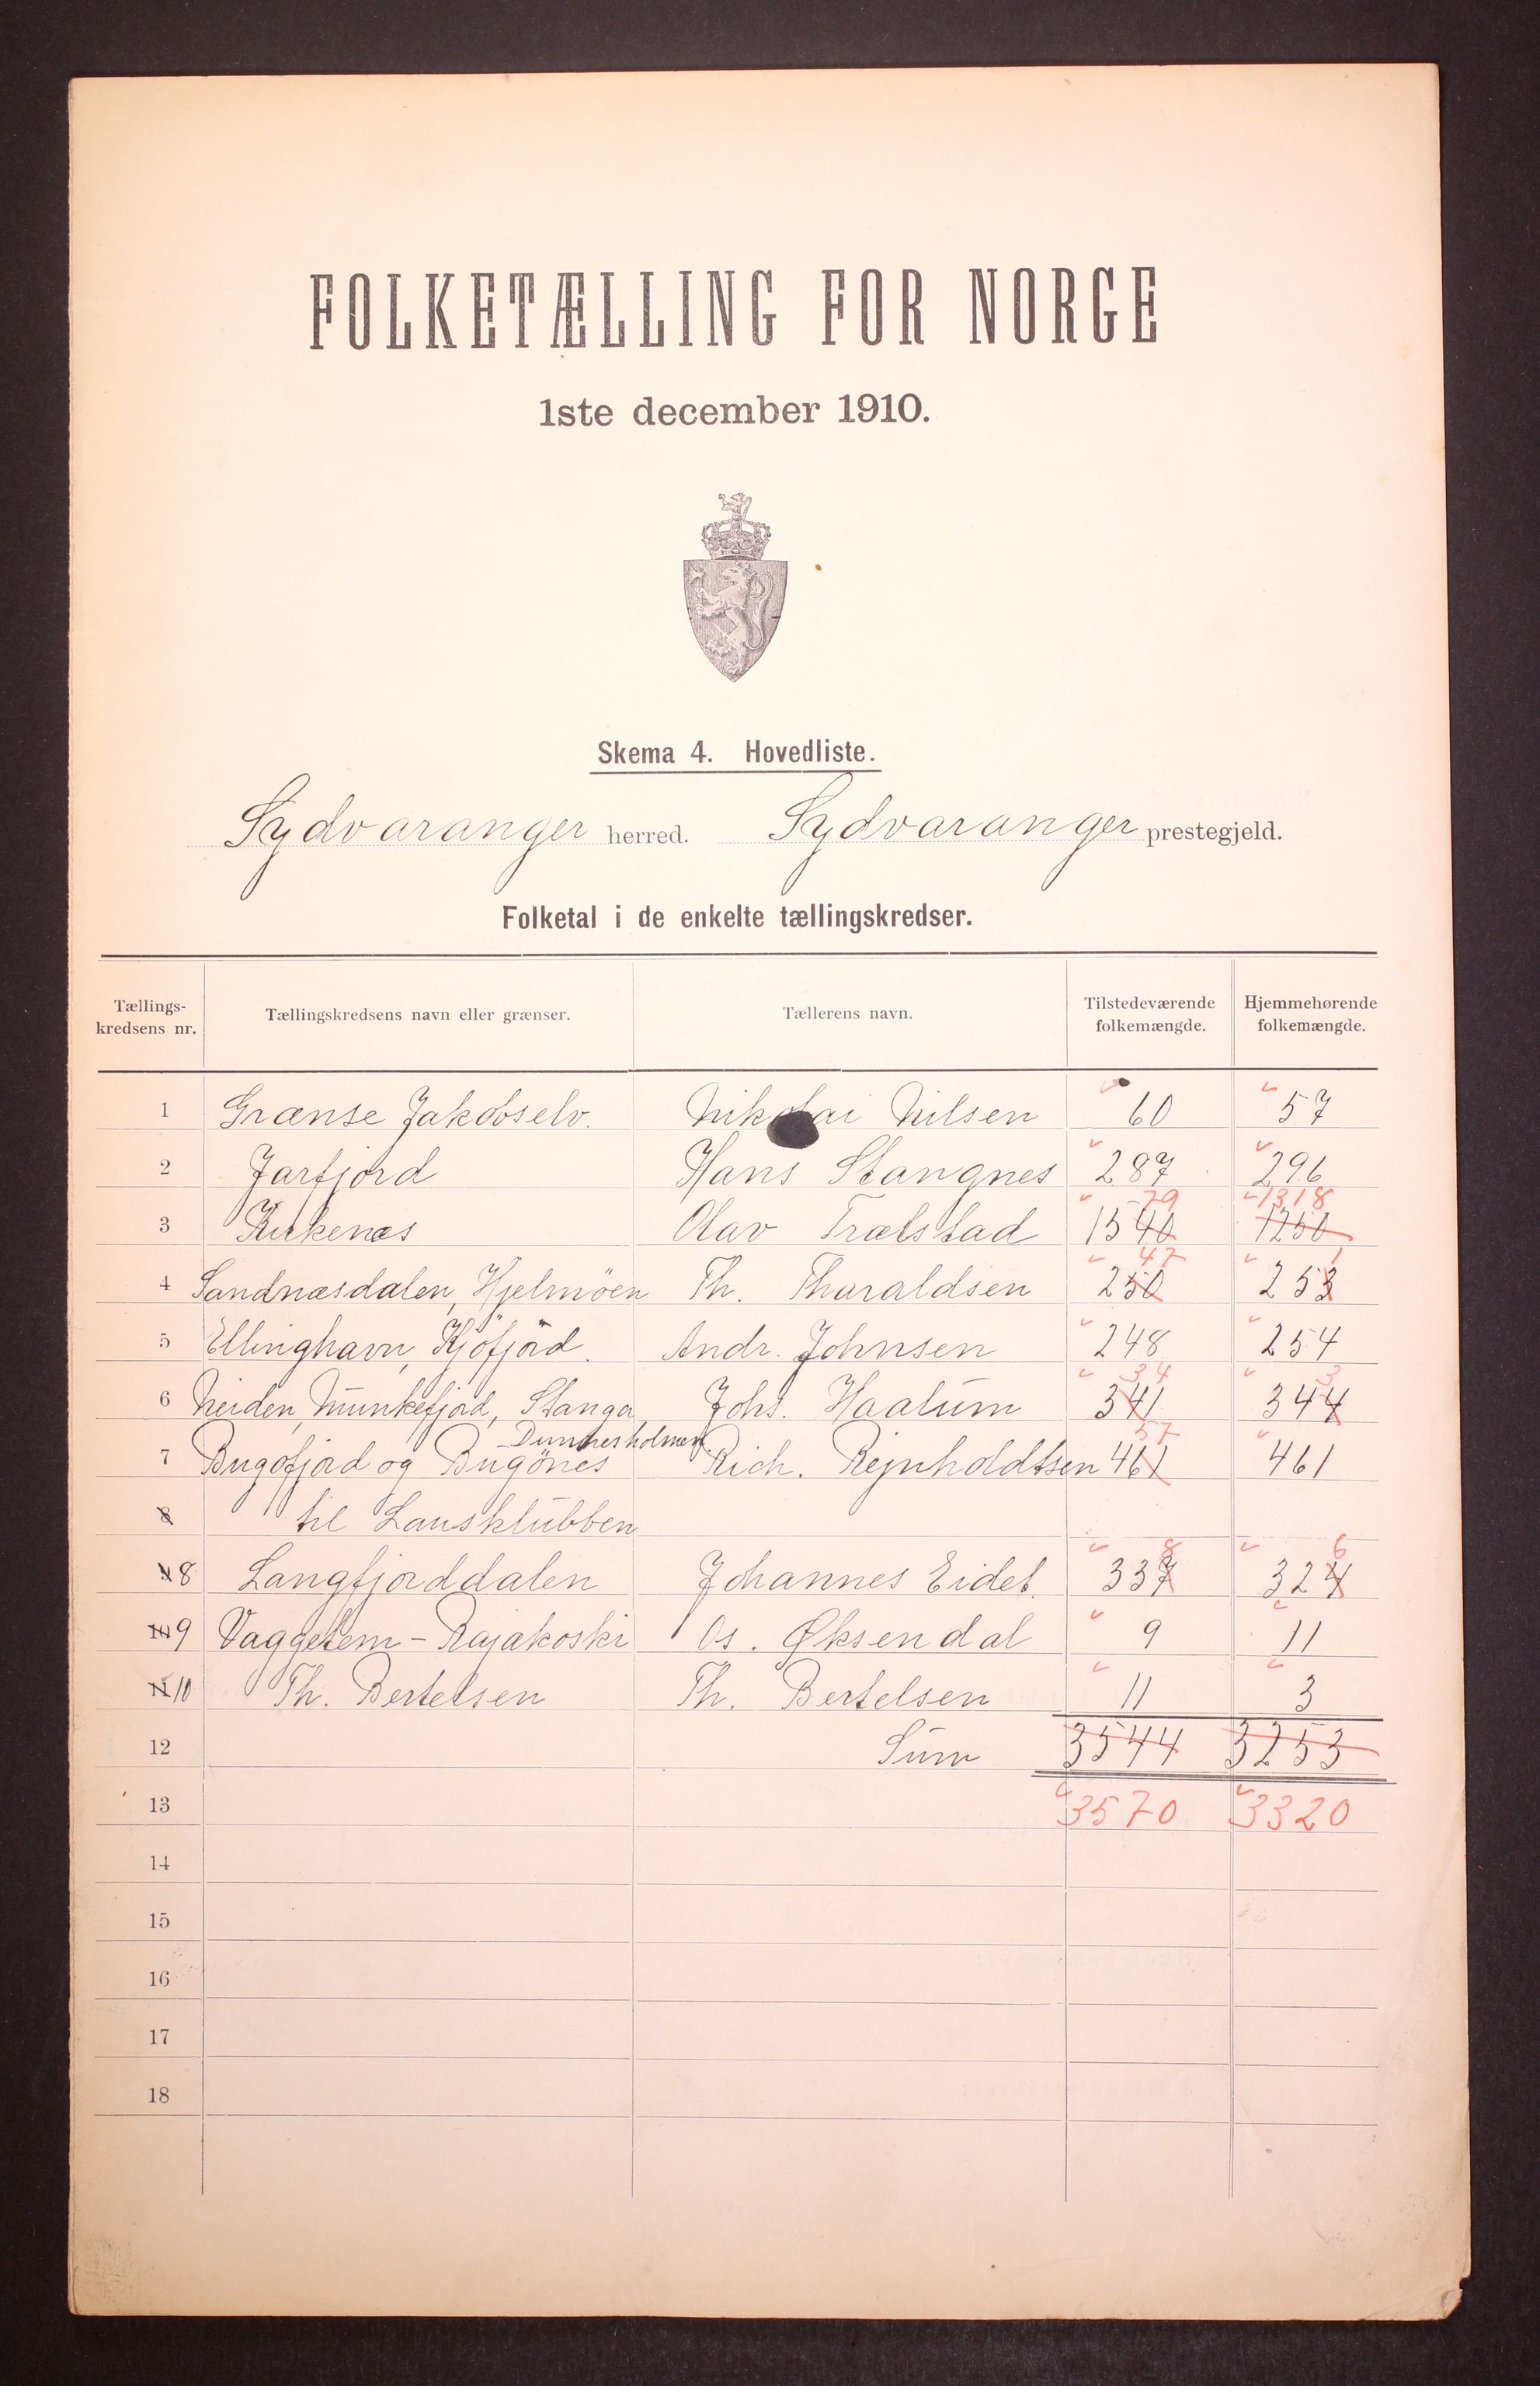 FOLKETÆLLING FOR NORGE
1ste december 1910.
Skema 4. Hovedliste.
Sydvaranger herred. Sydvaranger prestegjeld.
Folketal i de enkelte tællingskredser.
Tællings-kredsens nr. Tællingskredsens navn eller grænser. Tællerens navn. Tilstedeværende folkemængde. Hjemmehørende folkemængde.
1 Grænse Jakobselv. Nikolai Nilsen 60 57
2 Jarfjord Hans Stangnes 287 296
79 1318
3 Kirkenæs Olav Trælstad 1540 1250
47 1
4 Sandnæsdalen, Hjelmöen Th. Tharaldsen 250 253
5 Ellinghavn, Kjöfjord. Andr. Johnsen 248 254
34 3
6 Neiden, Munkefjord, Stanga, Johs. Haalum 341 344
Dunnesholmen 57
7 Bugöfjord og Bugönes Rich. Rejnholdtsen 461 461
8 til Lausklubben
8 6
8 Langfjorddalen Johannes Eidet. 337 324
10 9 Vaggetem - Rajakoski Os. Øksendal 9 11
11 10 Th. Bertelsen Th. Bertelsen 11 3
12 Sum 3544 3253
13 3570 3320
14
15
16
17
18